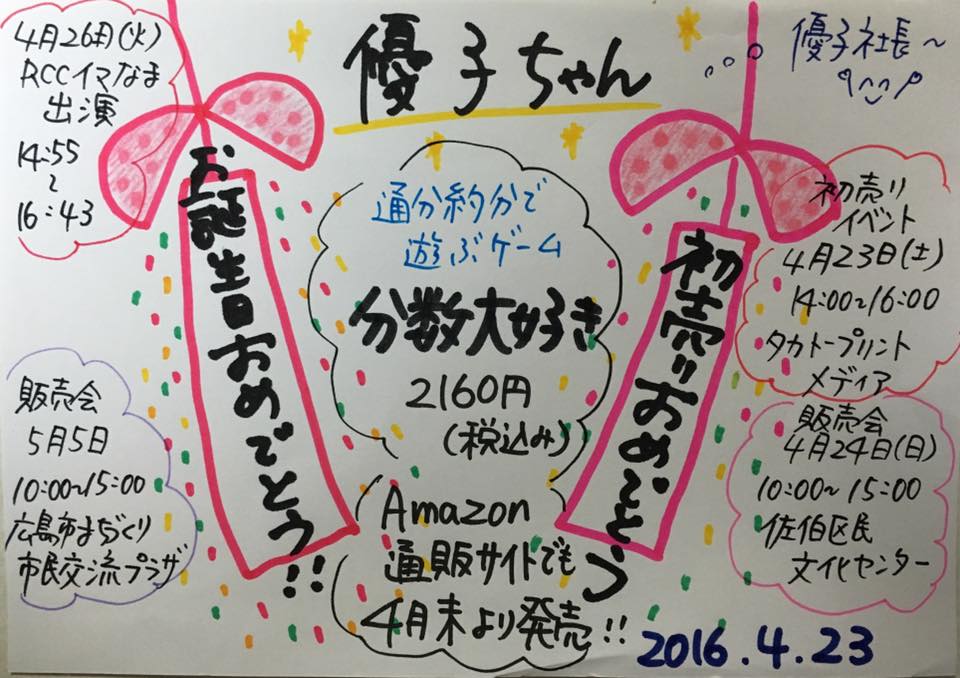 優子ちゃん
優子社長~
4月26日(火)
RCCイマなま
出演
14:55
~
16:43
お誕生日おめでとう!!
通分約分で
遊ぶゲーム
分数大好き
2160円
(税込み)
初売りおめでとう
初売り
イベント
4月23日(土)
14:00~16:00
タカトープリント
メディア
販売会
5月5日
10:00~15:00
広島市まちづくり
市民交流プラザ
Amazon
通販サイトでも
4月末より発売!!
販売会
4月24日(日)
10:00~15:00
佐伯区民
文化センター
2016.4.23